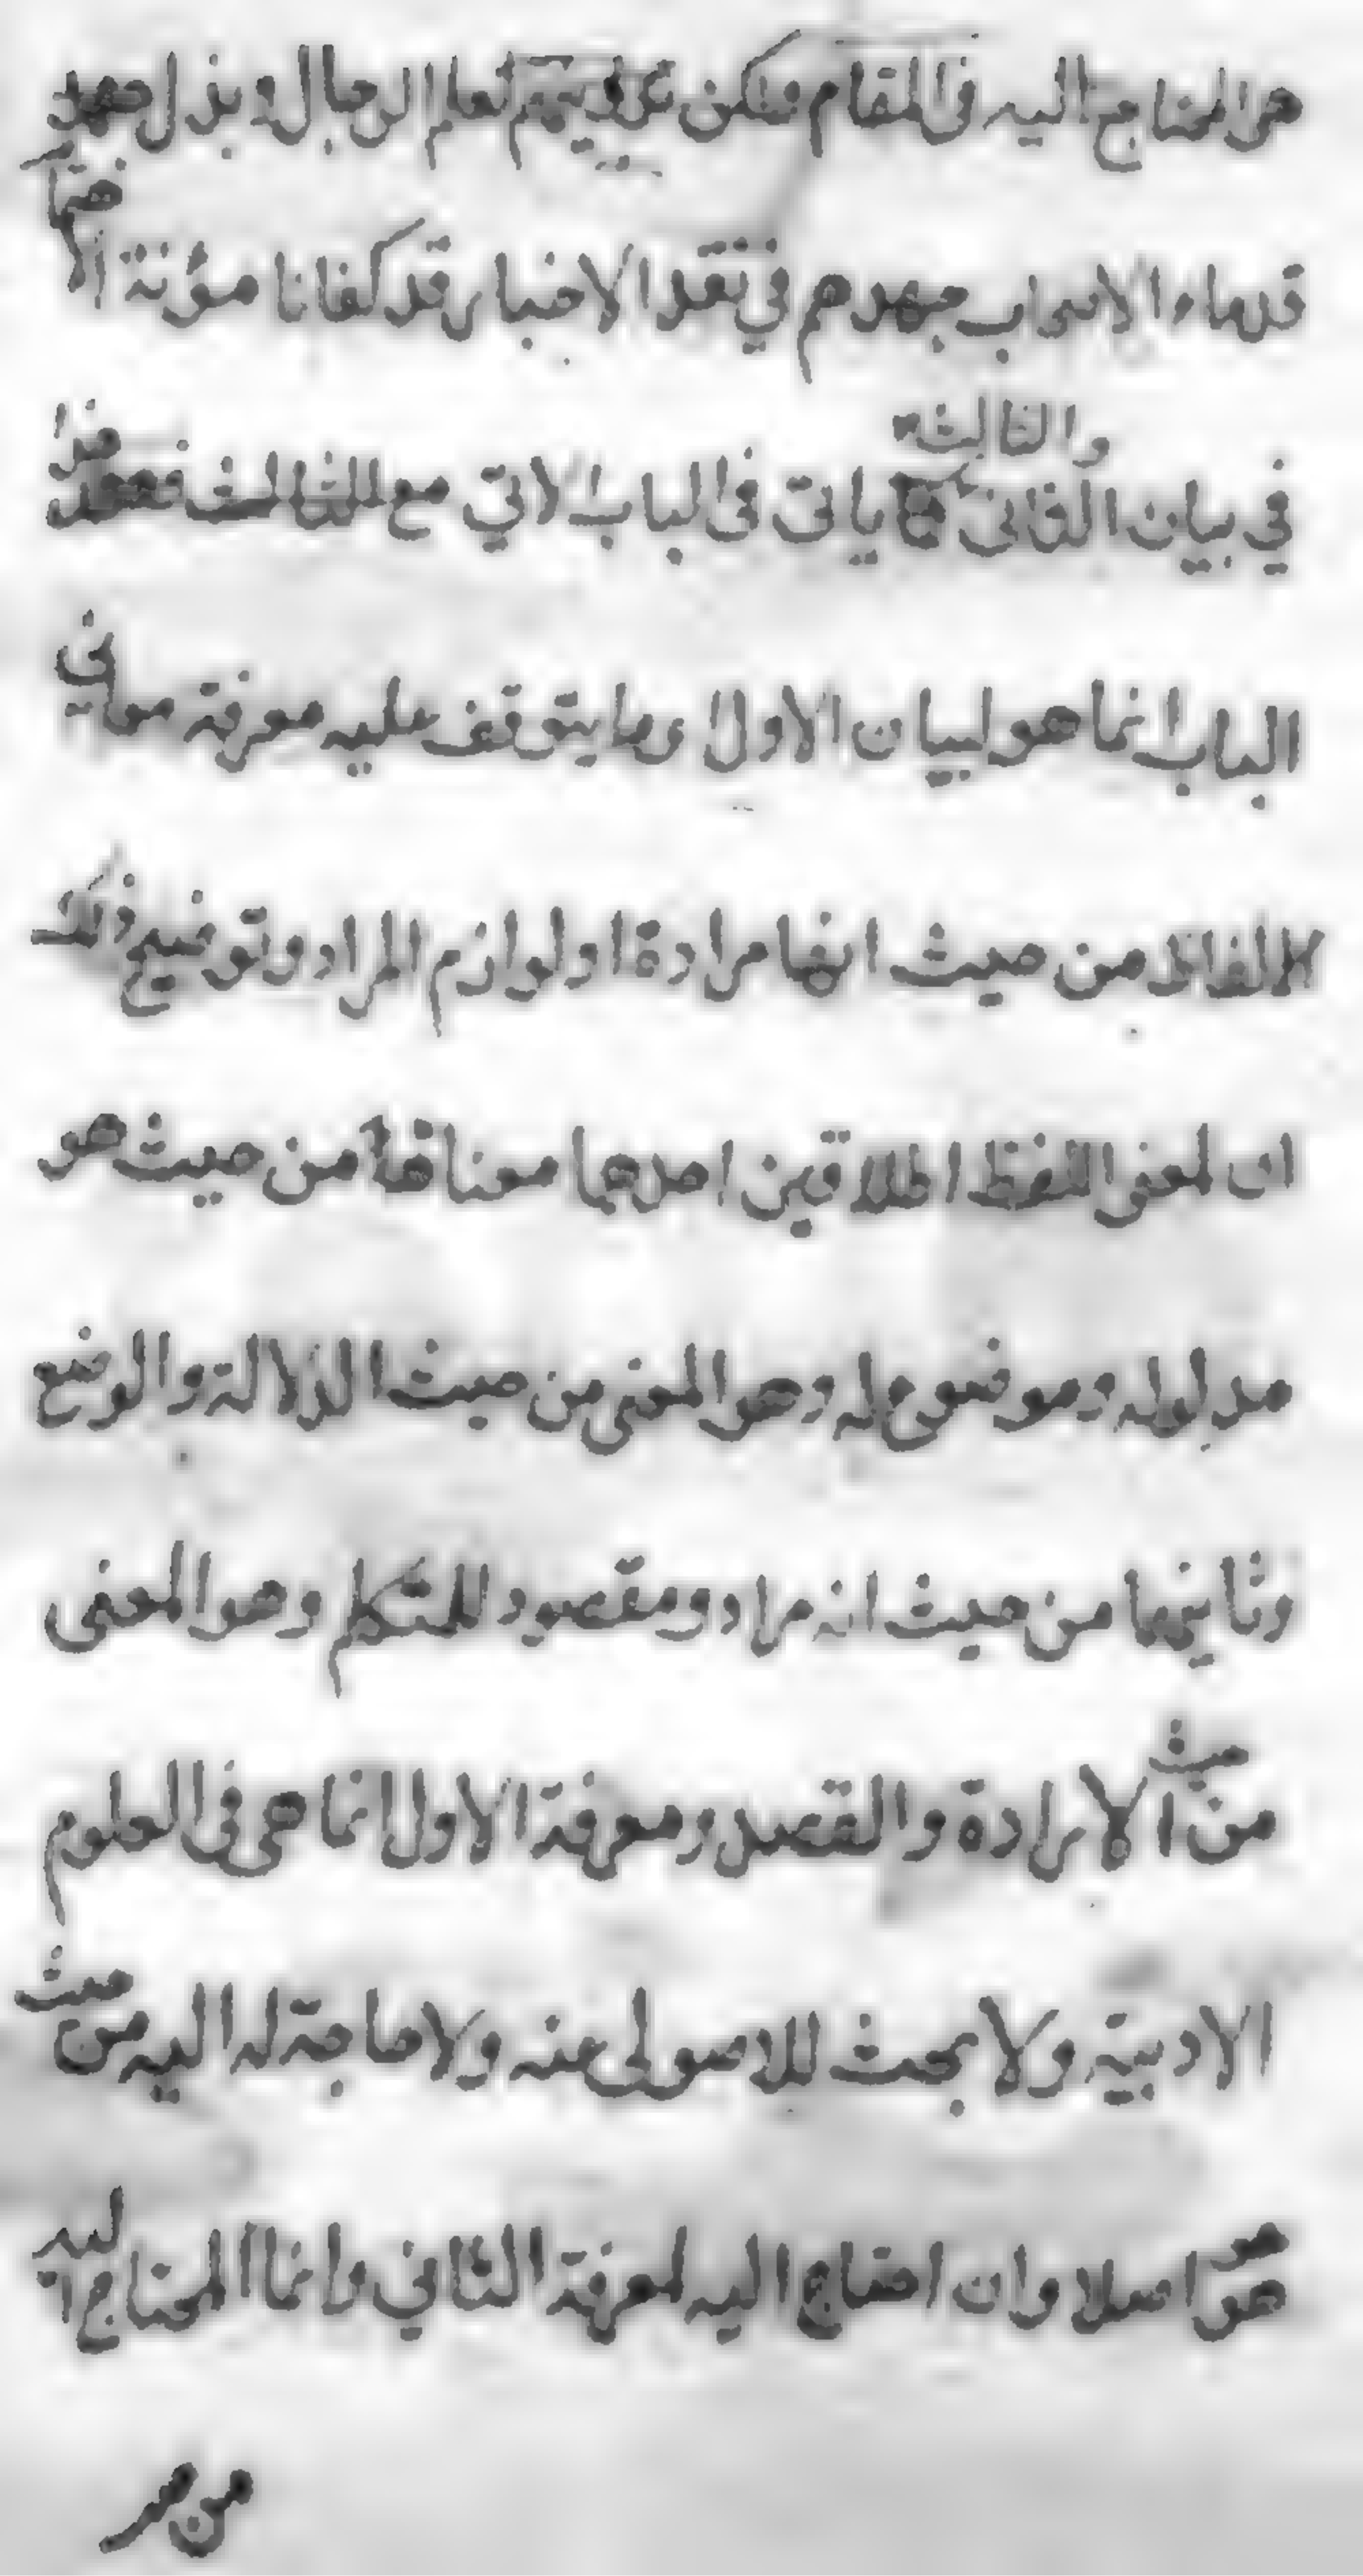 هى المحتاج اليه فى المقام لعلم الرجال و بذل جهد
قدماء الاصحاب جهدهم في نقد الاخبار قد كفانا مؤنة الاهتمام
والثالثة
في بيان الثانى كما ياتى فى الباب الاتي مع الثالث فعقد هذا
الباب انما هو لبيان الاول وما يتوقف عليه معرفة معاني
الالفاظ من حيث انها مرادة او لوازم المراد وتوضيح ذلك
ان لمعنى اللفظ اطلاقين احدهما معناها من حيث هو
مدلوله وموضوع له وهو المعنى من حيث الدلالة والوضع
وثانيهما من حيث انه مراد ومقصود للمتكلم وهو المعنى
من حيث الارادة والقصد ومعرفة الاول انما هى فى العلوم
الادبية ولا بحث للاصولى عنه ولا حاجة له اليه من حيث
هو اصلا وان احتاج اليه لمعرفة الثاني وانما المحتاج اليه
من